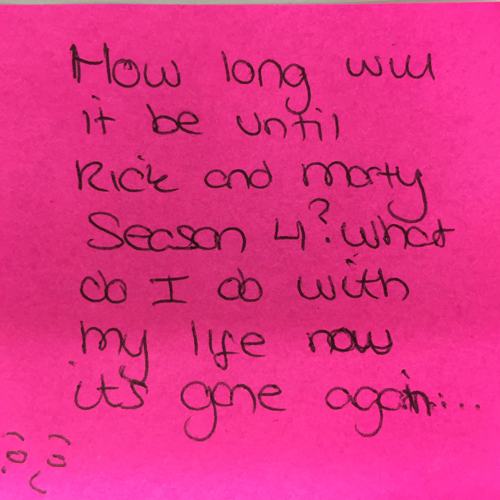 How long will
it be until
Rick and morty
Season 4? what
do I do with
my life now
it's gone again...